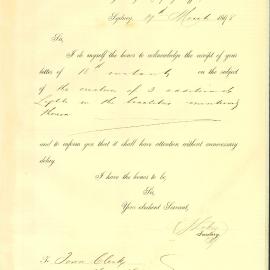 Sydney, 17th March 1898
Sir,
I do myself the honor to acknowledge the receipt of your
letter of 15th instant, on the subject
of the erection of 3 additional
Lights in the localities mentioned
therein
and to inform you that it shall have attention without unnecessary
delay.
I have the honor to be,
Sir,
Your obedient Servant,
Secretary
The Town Clerk